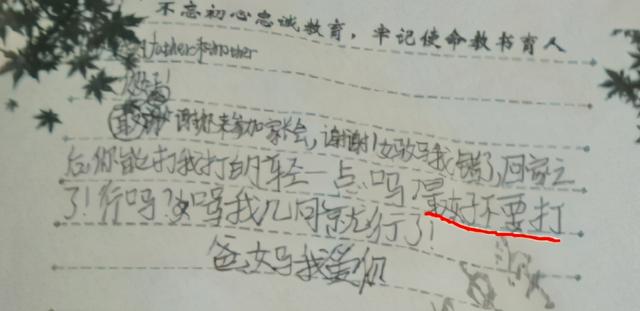 不忘初心忠诚教育，牢记使命教书育人
father和mother
你好！
谢谢你来参加家长会，谢谢！妈妈我错了，回家之
后，你能打我打的轻一点吗？最好不要打
了！行吗？吗我几句就行了！
爸妈我爱你